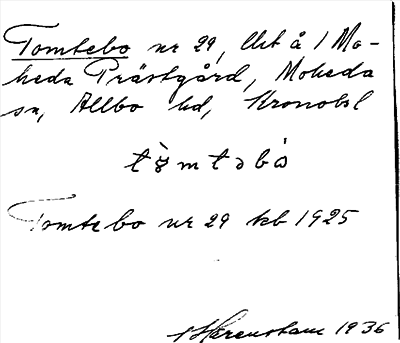 Tomtebo nr 29, Utt å 1 Mo-
heda Prästgård, Moheda
sn, Allbo hd, Kronobl
tò̤mtəbo
Tomtebo nr 29 kb 1925
Harenstam 1936